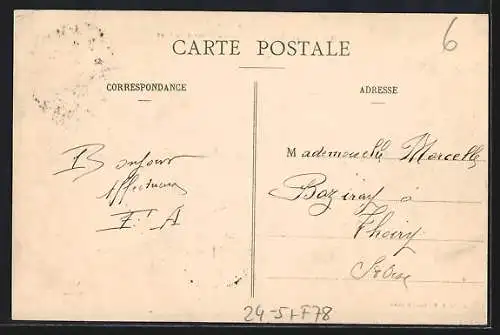 6
CARTE POSTALE
CORRESPONDANCE
ADRESSE
Bonjour
Affectueux
F. A
Mademoiselle Marcelle
Baziray à
Thoiry
S et Oise
24-5+F78